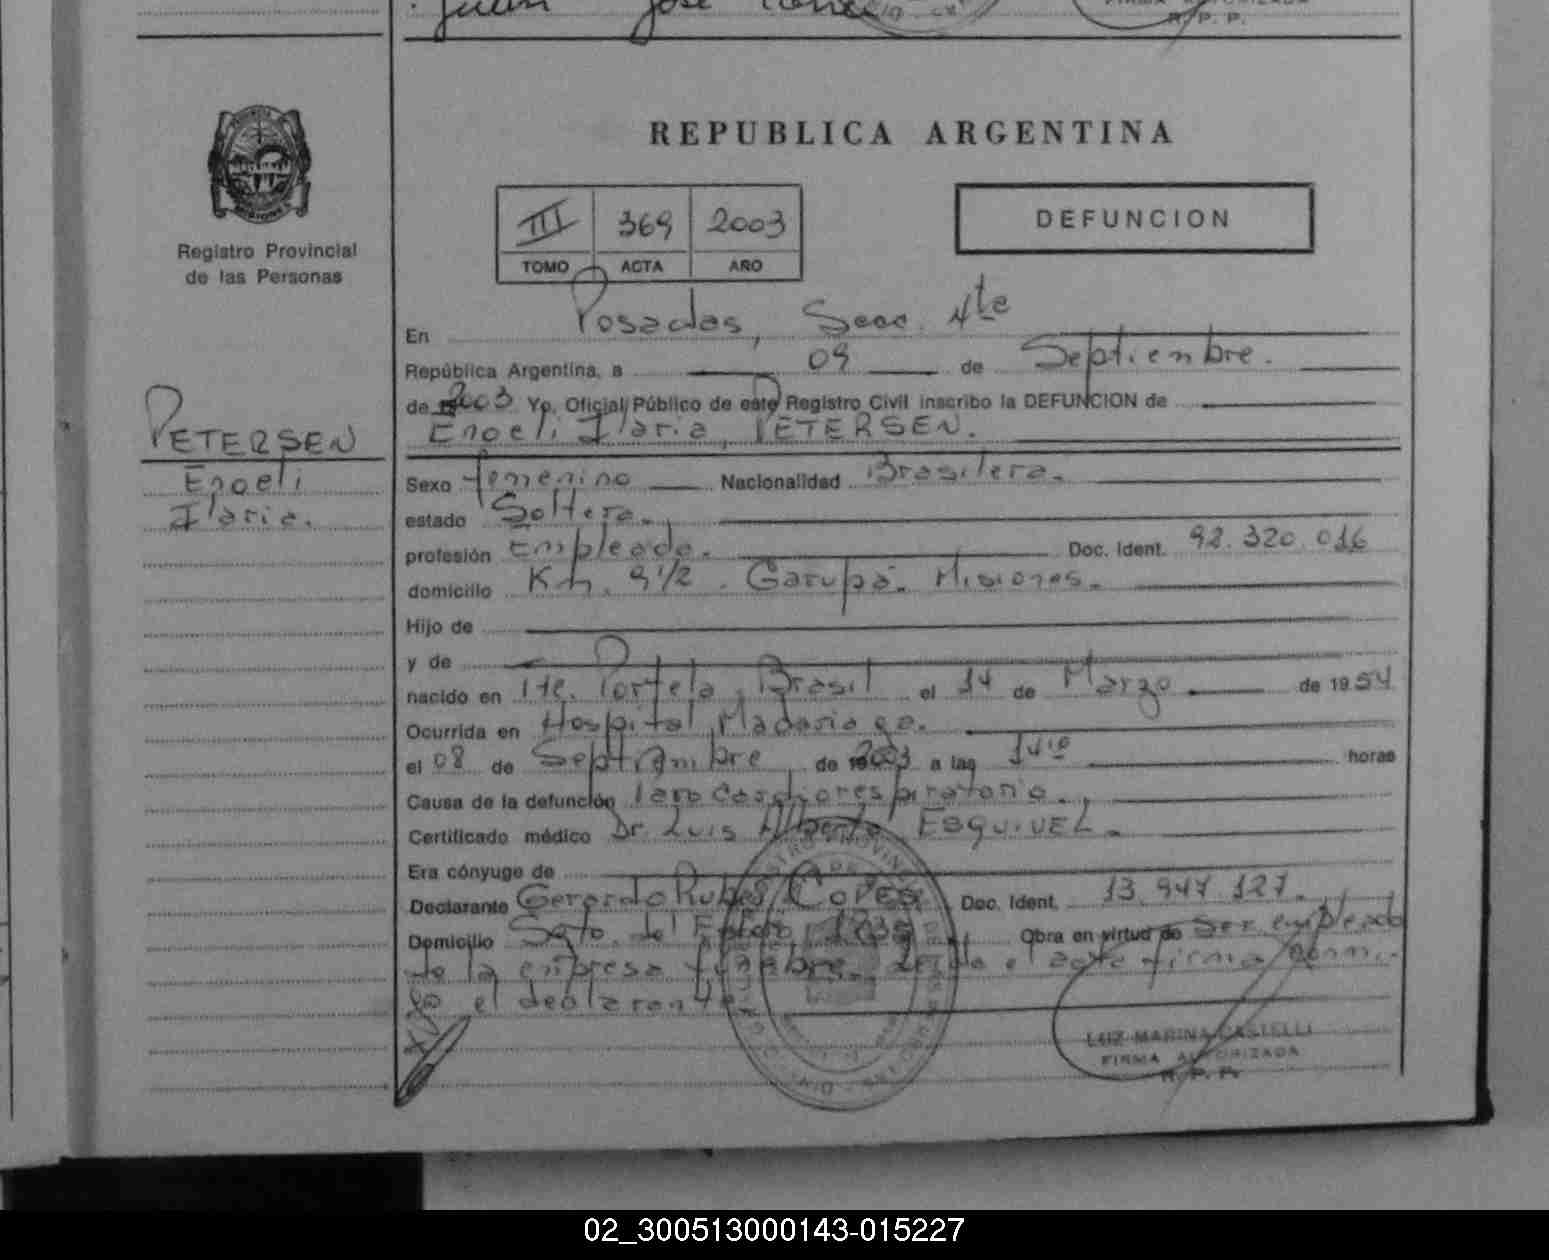 Juan José
REPUBLICA ARGENTINA
Registro Provincial
de las Personas
III 369 2003
TOMO ACTA AÑO
DEFUNCION
En Posadas, Secc. 4te
República Argentina, a 09 de Septiembre.
de 2003 Yo, Oficial Público de este Registro Civil inscribo la DEFUNCION de
Enoeli Ilaria, PETERSEN.
PETERSEN
Enoeli
Ilaria.
Sexo femenino Nacionalidad Brasilera.
estado Soltera.
profesión Empleada. Doc. Ident. 92.320.016
domicilio Km. 9 1/2. Garupá. Misiones.
Hijo de
y de
nacido en Tte. Portela, Brasil el 14 de Marzo de 1954
Ocurrida en Hospital Madariaga.
el 08 de Septiembre de 2003 a las 14 10 horas
Causa de la defunción Paro Cardiorespiratorio.
Certificado médico Dr. Luis Alberto ESQUIVEL.
Era cónyuge de
Declarante Gerardo Ruben Doc. Ident. 13.947.127.
Domicilio Sgto. del Estero Obra en virtud de Ser empleado
de la empresa fúnebre. Leída el acta firma conmi-
go el declarante.
LUZ MARINA CASTELLI
FIRMA AUTORIZADA
R. P. P.
02_300513000143-015227